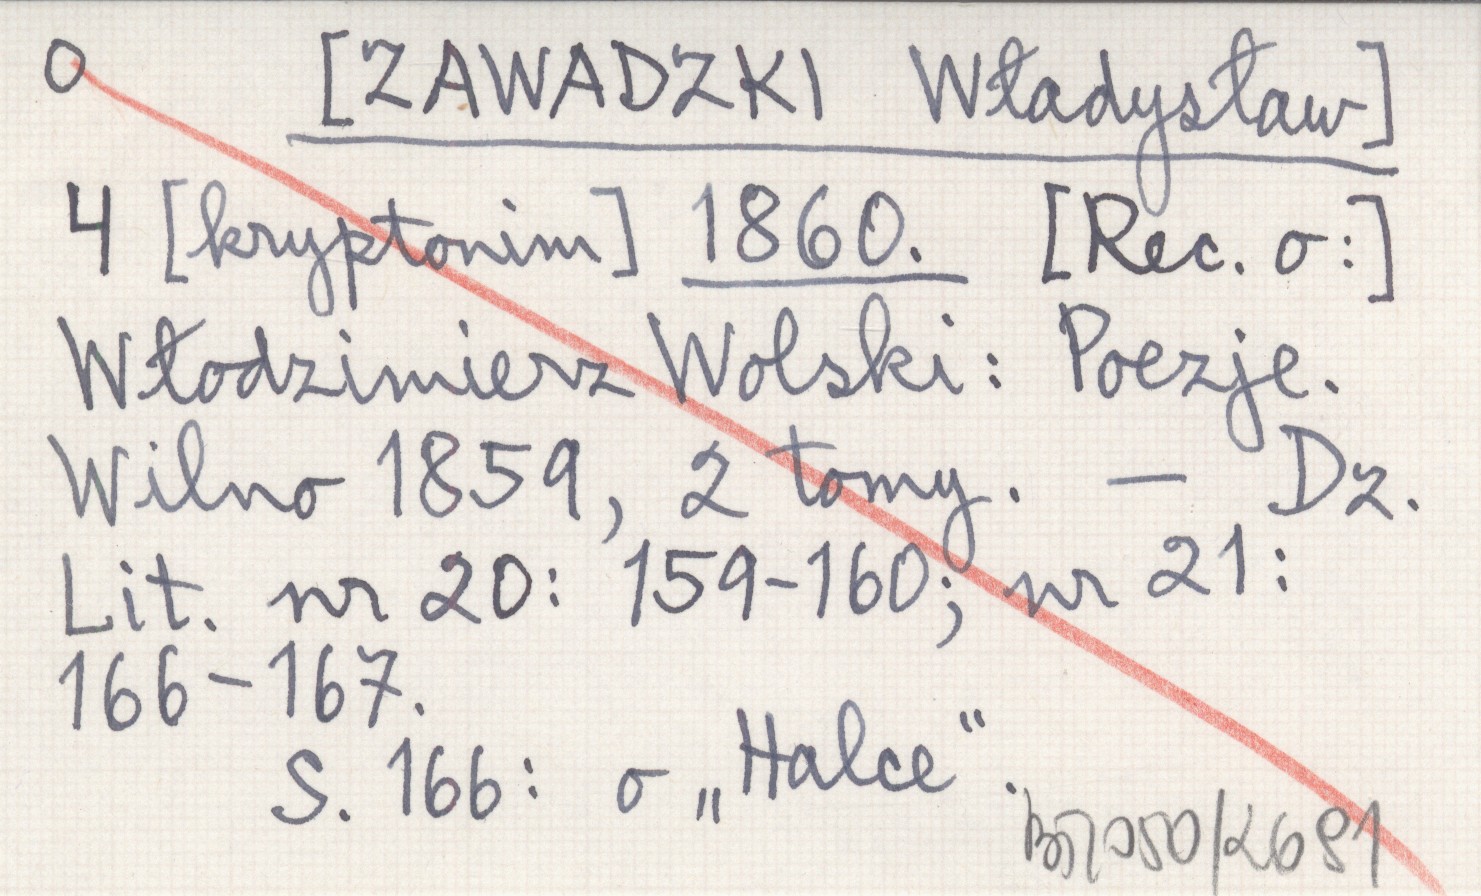 0 [ZAWADZKI Władysław]
4 [kryptonim] 1860. [Rec. o:]
Włodzimierz Wolski: Poezje.
Wilno 1859, 2 tomy. — Dz.
Lit. nr 20: 159-160; nr 21:
166-167.
S. 166: o „Halce“.